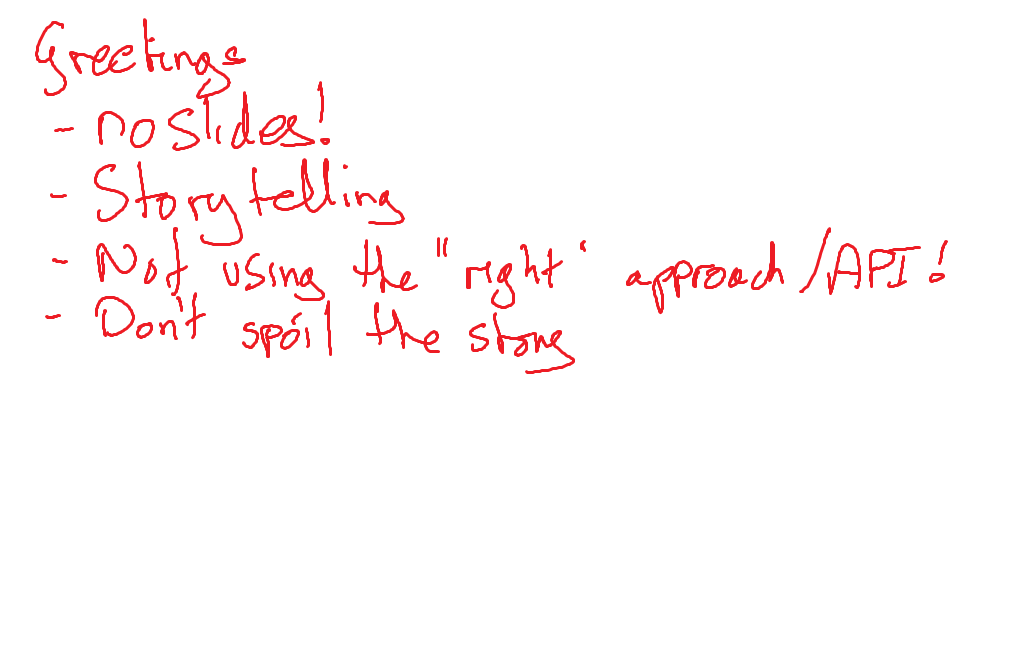 Greetings
- no slides!
- Storytelling
- Not using the "right" approach/API!
- Don't spoil the story